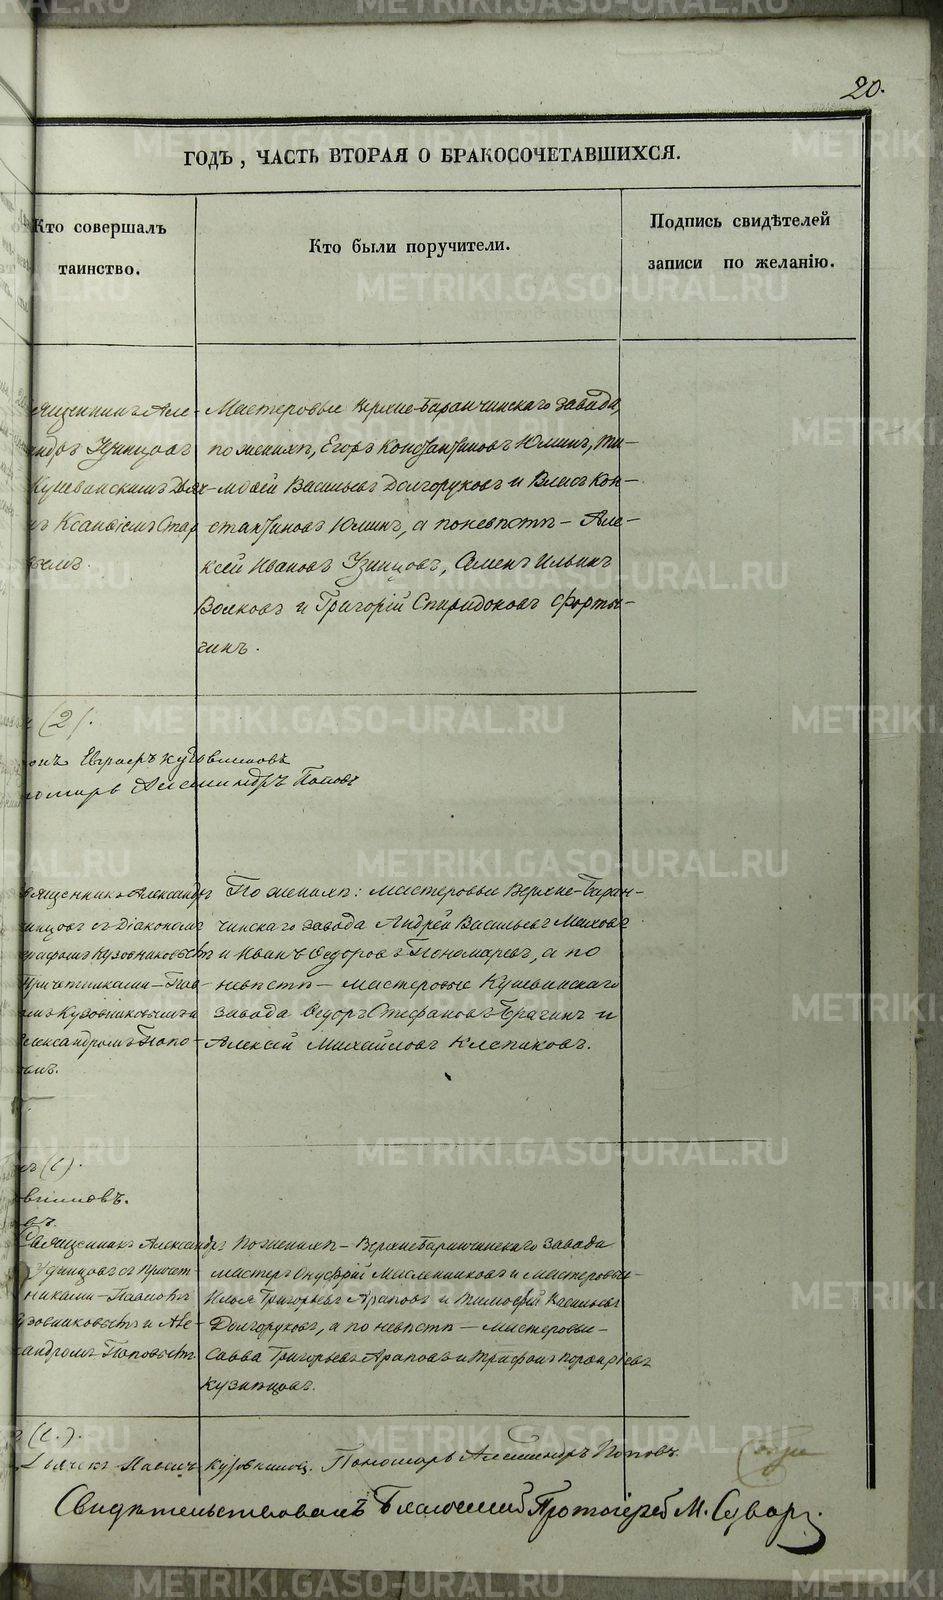 20.
ГОДЪ, ЧАСТЬ ВТОРАЯ О БРАКОСОЧЕТАВШИХСЯ.
Кто совершалъ
таинство.
Кто были поручители.
Подпись свидѣтелей
записи по желанію.
Мастеровые Верхне-Баранчинскаго завода,
по женихѣ, Егоръ Константиновъ Юминъ, Ти-
моѳей Васильевъ Долгоруковъ и Власъ Кон-
стантиновъ Юминъ, а по невѣстѣ - Але-
ксѣй Ивановъ Удинцовъ, Семенъ Ильинъ
Волковъ и Григорій Спиридоновъ Форты-
гинъ.
(2).
Евграфъ Кузовниковъ
Александръ Поповъ
Александръ
съ Діакономъ
Кузовниковымъ
Причетниками - Пав-
Кузовниковымъ и
Александромъ Попо-
вымъ.
По женихѣ: мастеровые Верхне-Баран-
чинскаго завода Андрей Васильевъ Маховъ
и Иванъ Ѳедоровъ Пономаревъ, а по
невѣстѣ - мастеровые Кушвинскаго
завода Ѳедоръ Стефановъ Брагинъ и
Алексѣй Михайловъ Клепиковъ.
Священникъ Александръ
Удинцовъ съ Причет-
никами - Павломъ
Кузовниковымъ и Але-
ксандромъ Поповымъ.
По женихѣ - Верхнебаранчинскаго завода
мастеръ Онуфрій Масленниковъ и мастеровые -
Илья Григорьевъ Араповъ и Тимоѳей Васильевъ
Долгоруковъ, а по невѣстѣ - мастеровые -
Савва Григорьевъ Араповъ и Трифонъ Порфирьевъ
Кузнецовъ.
Дьячекъ Павелъ Кузовниковъ. Пономарь Александръ Поповъ.
Свидѣтельствовалъ Благочинный Протоіерей М. Сувор
METRIKI.GASO-URAL.RU